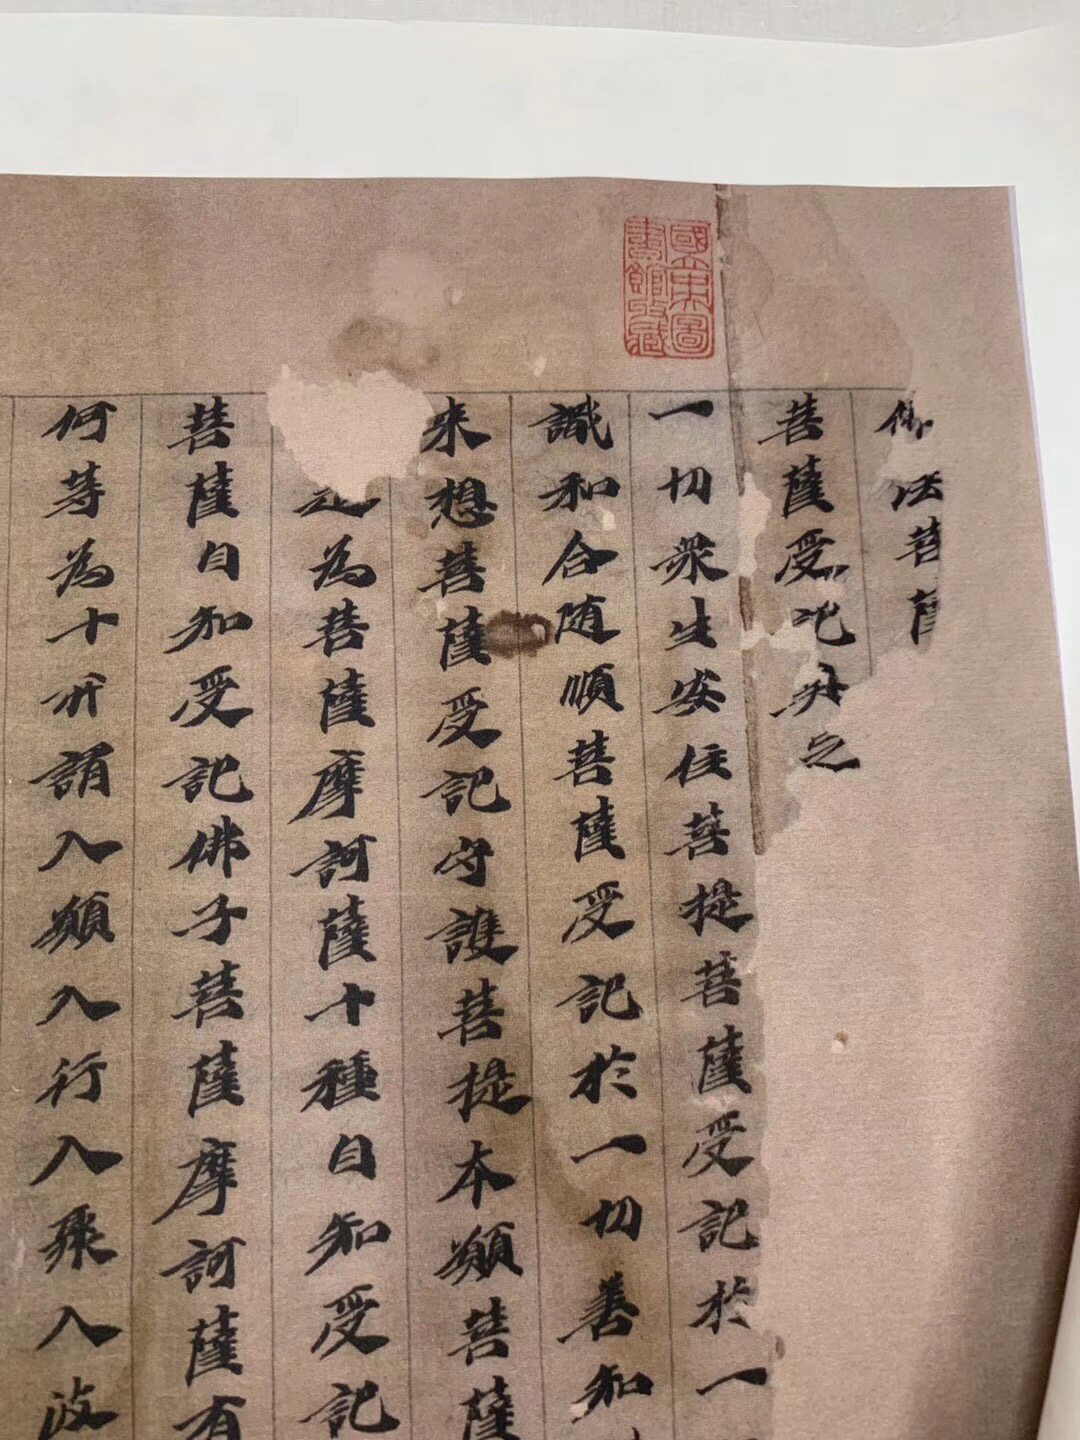 國立北平圖
書館收藏
佛法菩薩
菩薩受記舛之
一切衆生安住菩提菩薩受記於一
識和合随順菩薩受記於一切善知
来想菩薩受記守護菩提本願菩薩
是為菩薩摩訶薩十種自知受記
菩薩自知受記佛子菩薩摩訶薩有
何等為十所謂入願入行入乘入波